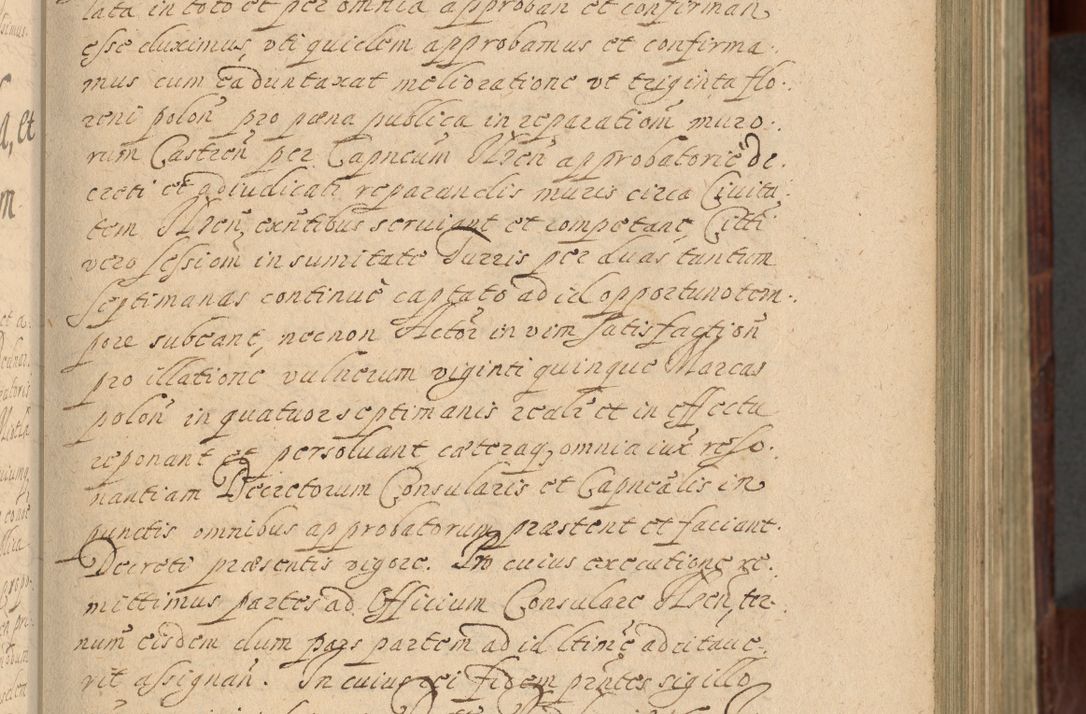 lata in toto et per omnia approban et confirman
esse duximus, vti quidem approbamus et confirma.
mus cum ea duntaxat melioratione vt triginta flo.
reni polon pro pæna publica in reparation muro.
rum Castren per Capneum approbatorie De.
creti et adiudicati reparandis muris circa Ciuita
tem exntibus seruiant et competant, Citti
vero sessiom in sumitate Turris per duas tantum
septimanas continue captato ad id opportuno tem.
pore subeant, necnon Actor in vim satisfaction
pro illatione vulnerum viginti quinque Marcas
polon in quatuor septimanis realr et in effectu
reponant et persoluant cæteraq, omnia iux reso.
nantiam Decretorum Consularis et Capnealis in
punctis omnibus approbatorum præstent et faciant.
Decreti præsentis vigore. Pro cuius executione re.
mittimus partes ad Officium Consulare ter.
num eisdem dum pars partem ad id ltime adcitaue.
rit assignan. In cuius rei fidem prntes sigillo